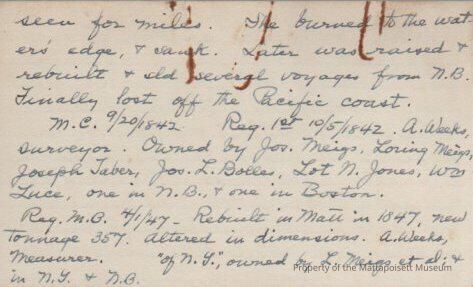 seen for miles. She burned to the wat-
ers' edge, & sank. Later was raised &
rebuilt & did several voyages from N.B.
Finally lost off the Pacific coast.
M.C. 9/20/1842 Reg. 1st 10/5/1842. A. Weeks,
surveyor. Owned by Jos. Meigs, Loring Meigs,
Joseph Taber, Jos. L. Bolles, Lot N. Jones, Wm
Luce, one in N.B. & one in Boston.
Reg. N.B. 4/1/47 - Rebuilt in Matt in 1847, new
tonnage 357. Altered in dimensions. A. Weeks,
Measurer. "of N.Y.", owned by L. Meigs et al: &
in N.Y. & N.B.
Property of the Mattapoisett Museum